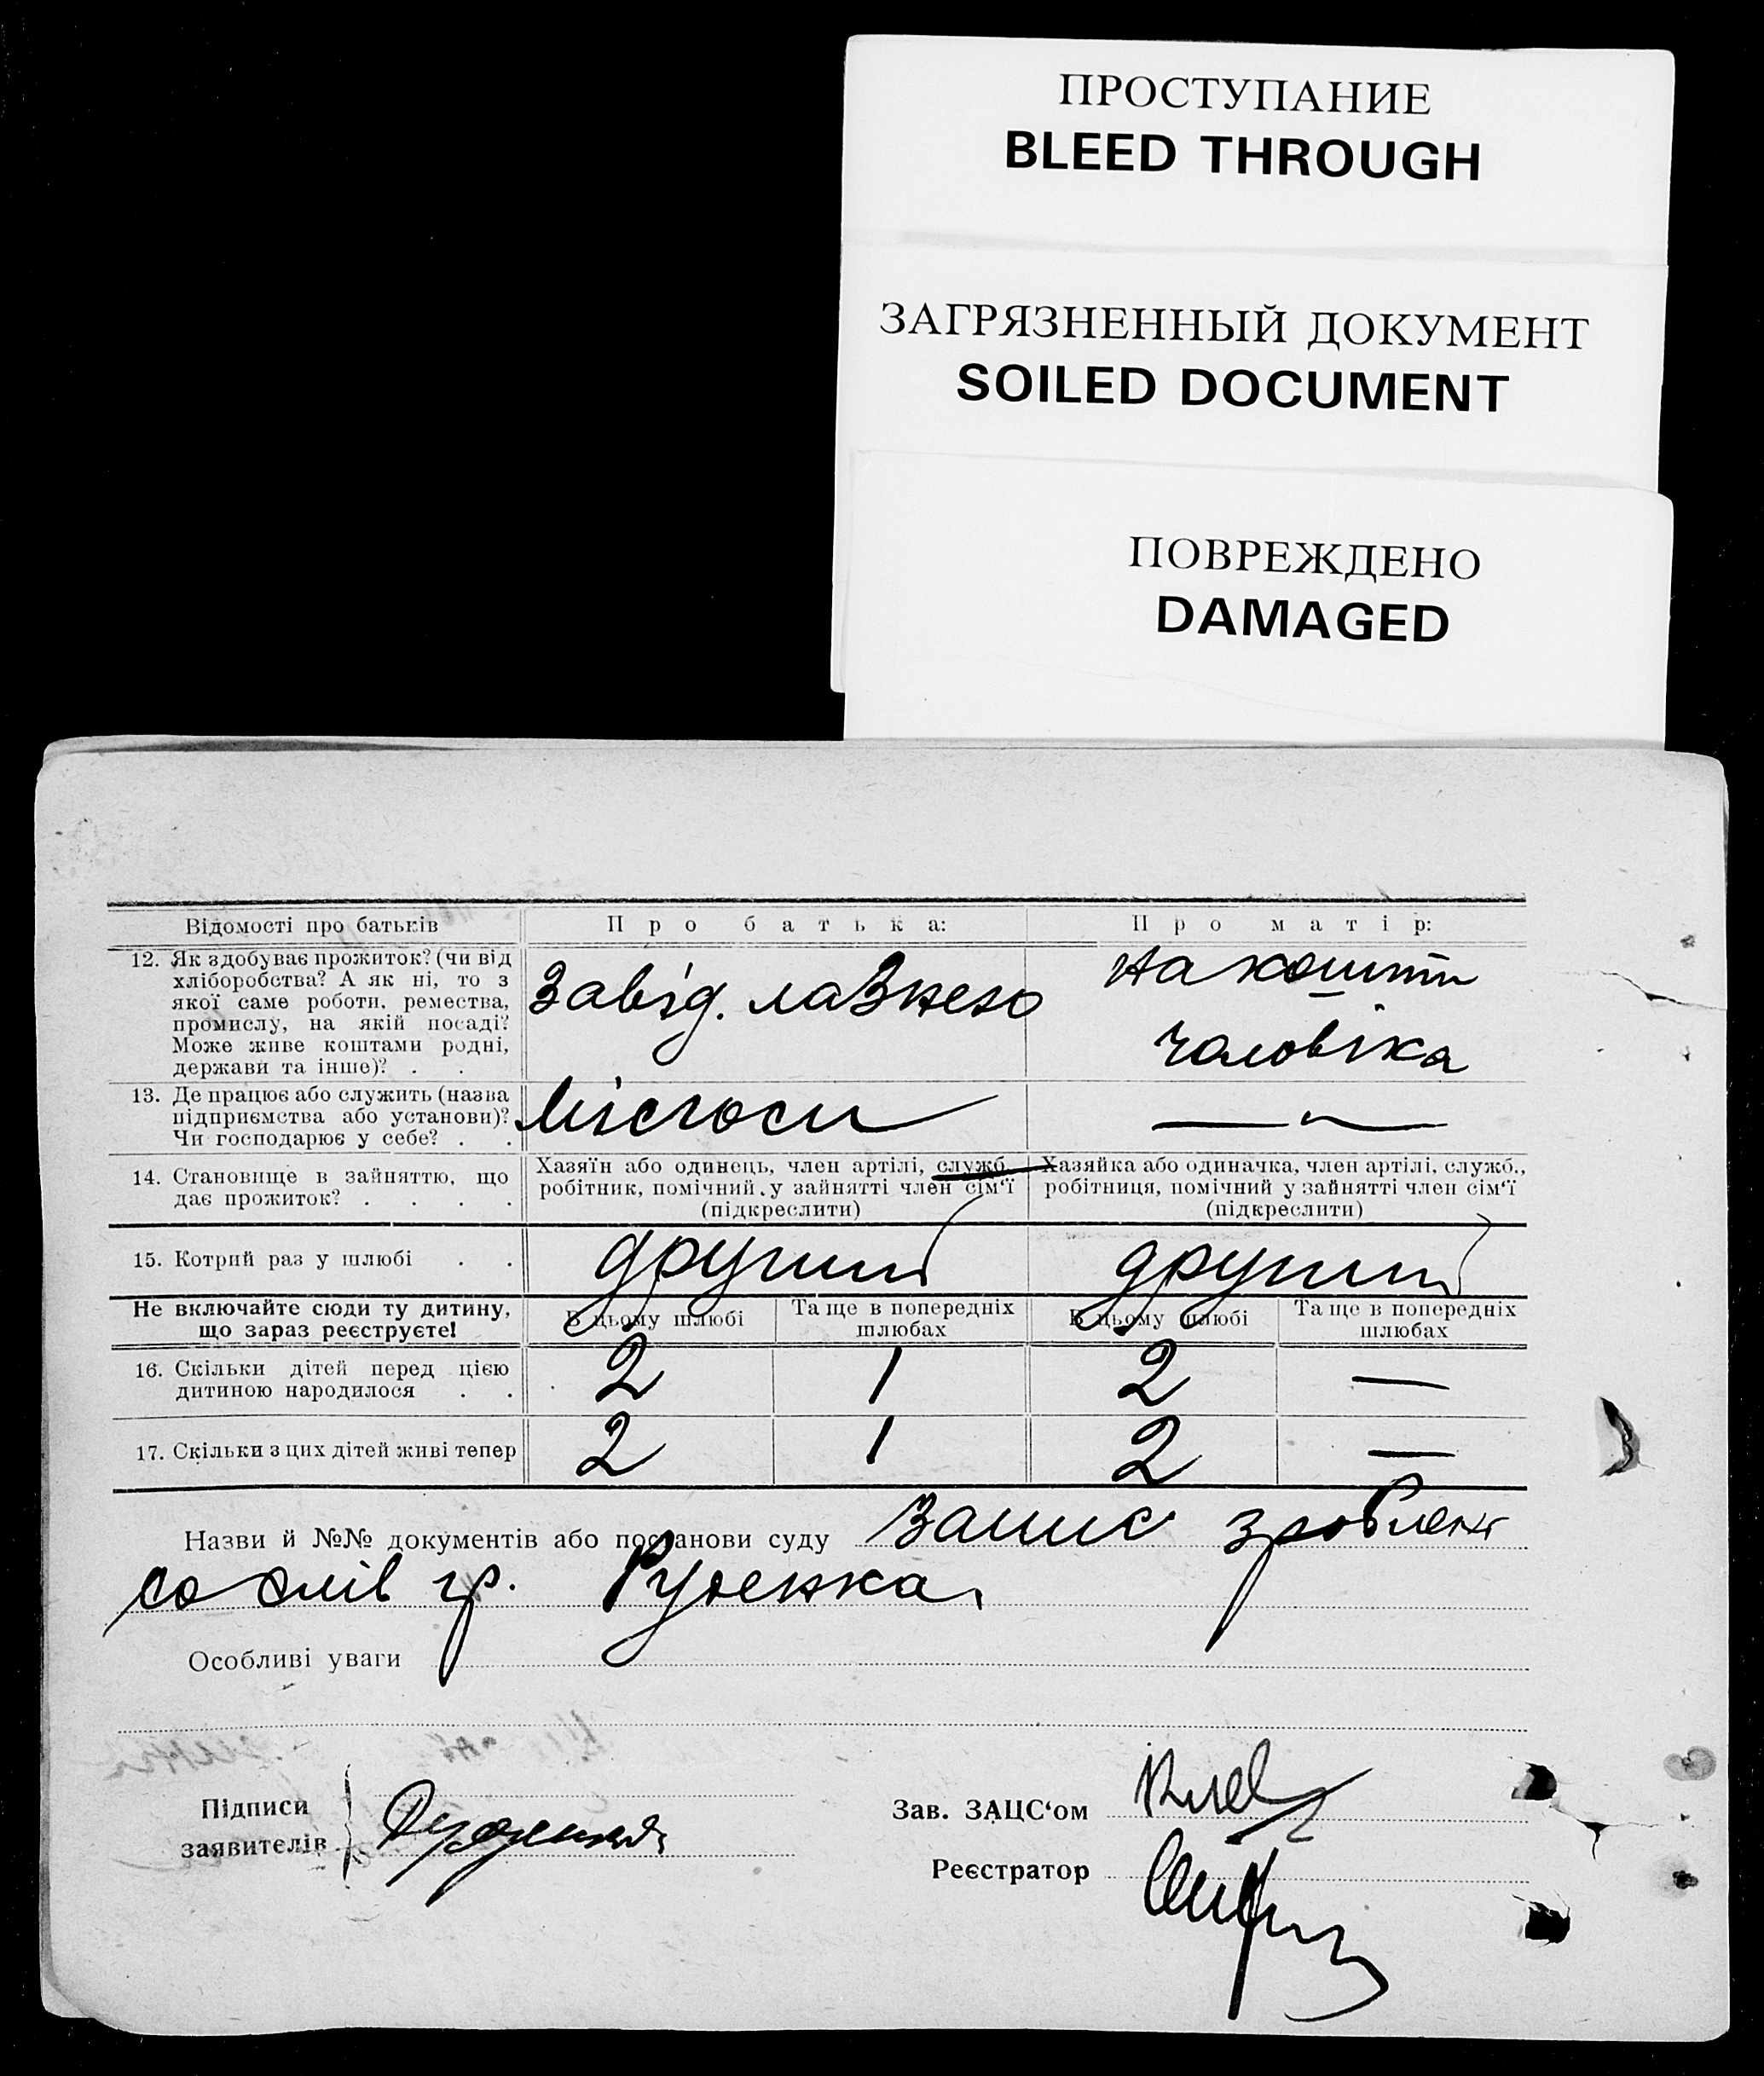 ПРОСТУПАНИЕ
BLEED THROUGH
ЗАГРЯЗНЕННЫЙ ДОКУМЕНТ
SOILED DOCUMENT
ПОВРЕЖДЕНО
DAMAGED
Відомості про батьків
Про батька:
Про матір:
12. Як здобуває прожиток? (чи від
хліборобства? А як ні, то з
якої саме роботи, ремества,
промислу, на якій посаді?
Може живе коштами родні,
держави та інше)? . .
Завід. лазнею
На кошти
чоловіка
13. Де працює або служить (назва
підприємства або установи)?
Чи господарює у себе? . .
14. Становище в зайняттю, що
дає прожиток? . . . .
Хазяїн або одинець, член артілі, служб.
робітник, помічний у зайнятті член сім'ї
(підкреслити)
Хазяйка або одиначка, член артілі, служб.,
робітниця, помічний у зайнятті член сім'ї
(підкреслити)
15. Котрий раз у шлюбі . .
другий
другий
Не включайте сюди ту дитину,
що зараз реєструєте!
В цьому шлюбі
Та ще в попередніх
шлюбах
В цьому шлюбі
Та ще в попередніх
шлюбах
16. Скільки дітей перед цією
дитиною народилося . .
2 1 2 —
17. Скільки з цих дітей живі тепер
2 1 2 —
Назви й №№ документів або постанови суду Запис зроблено
со слів гр.
Особливі уваги
Підписи
заявителів
Зав. ЗАЦС'ом
Реєстратор